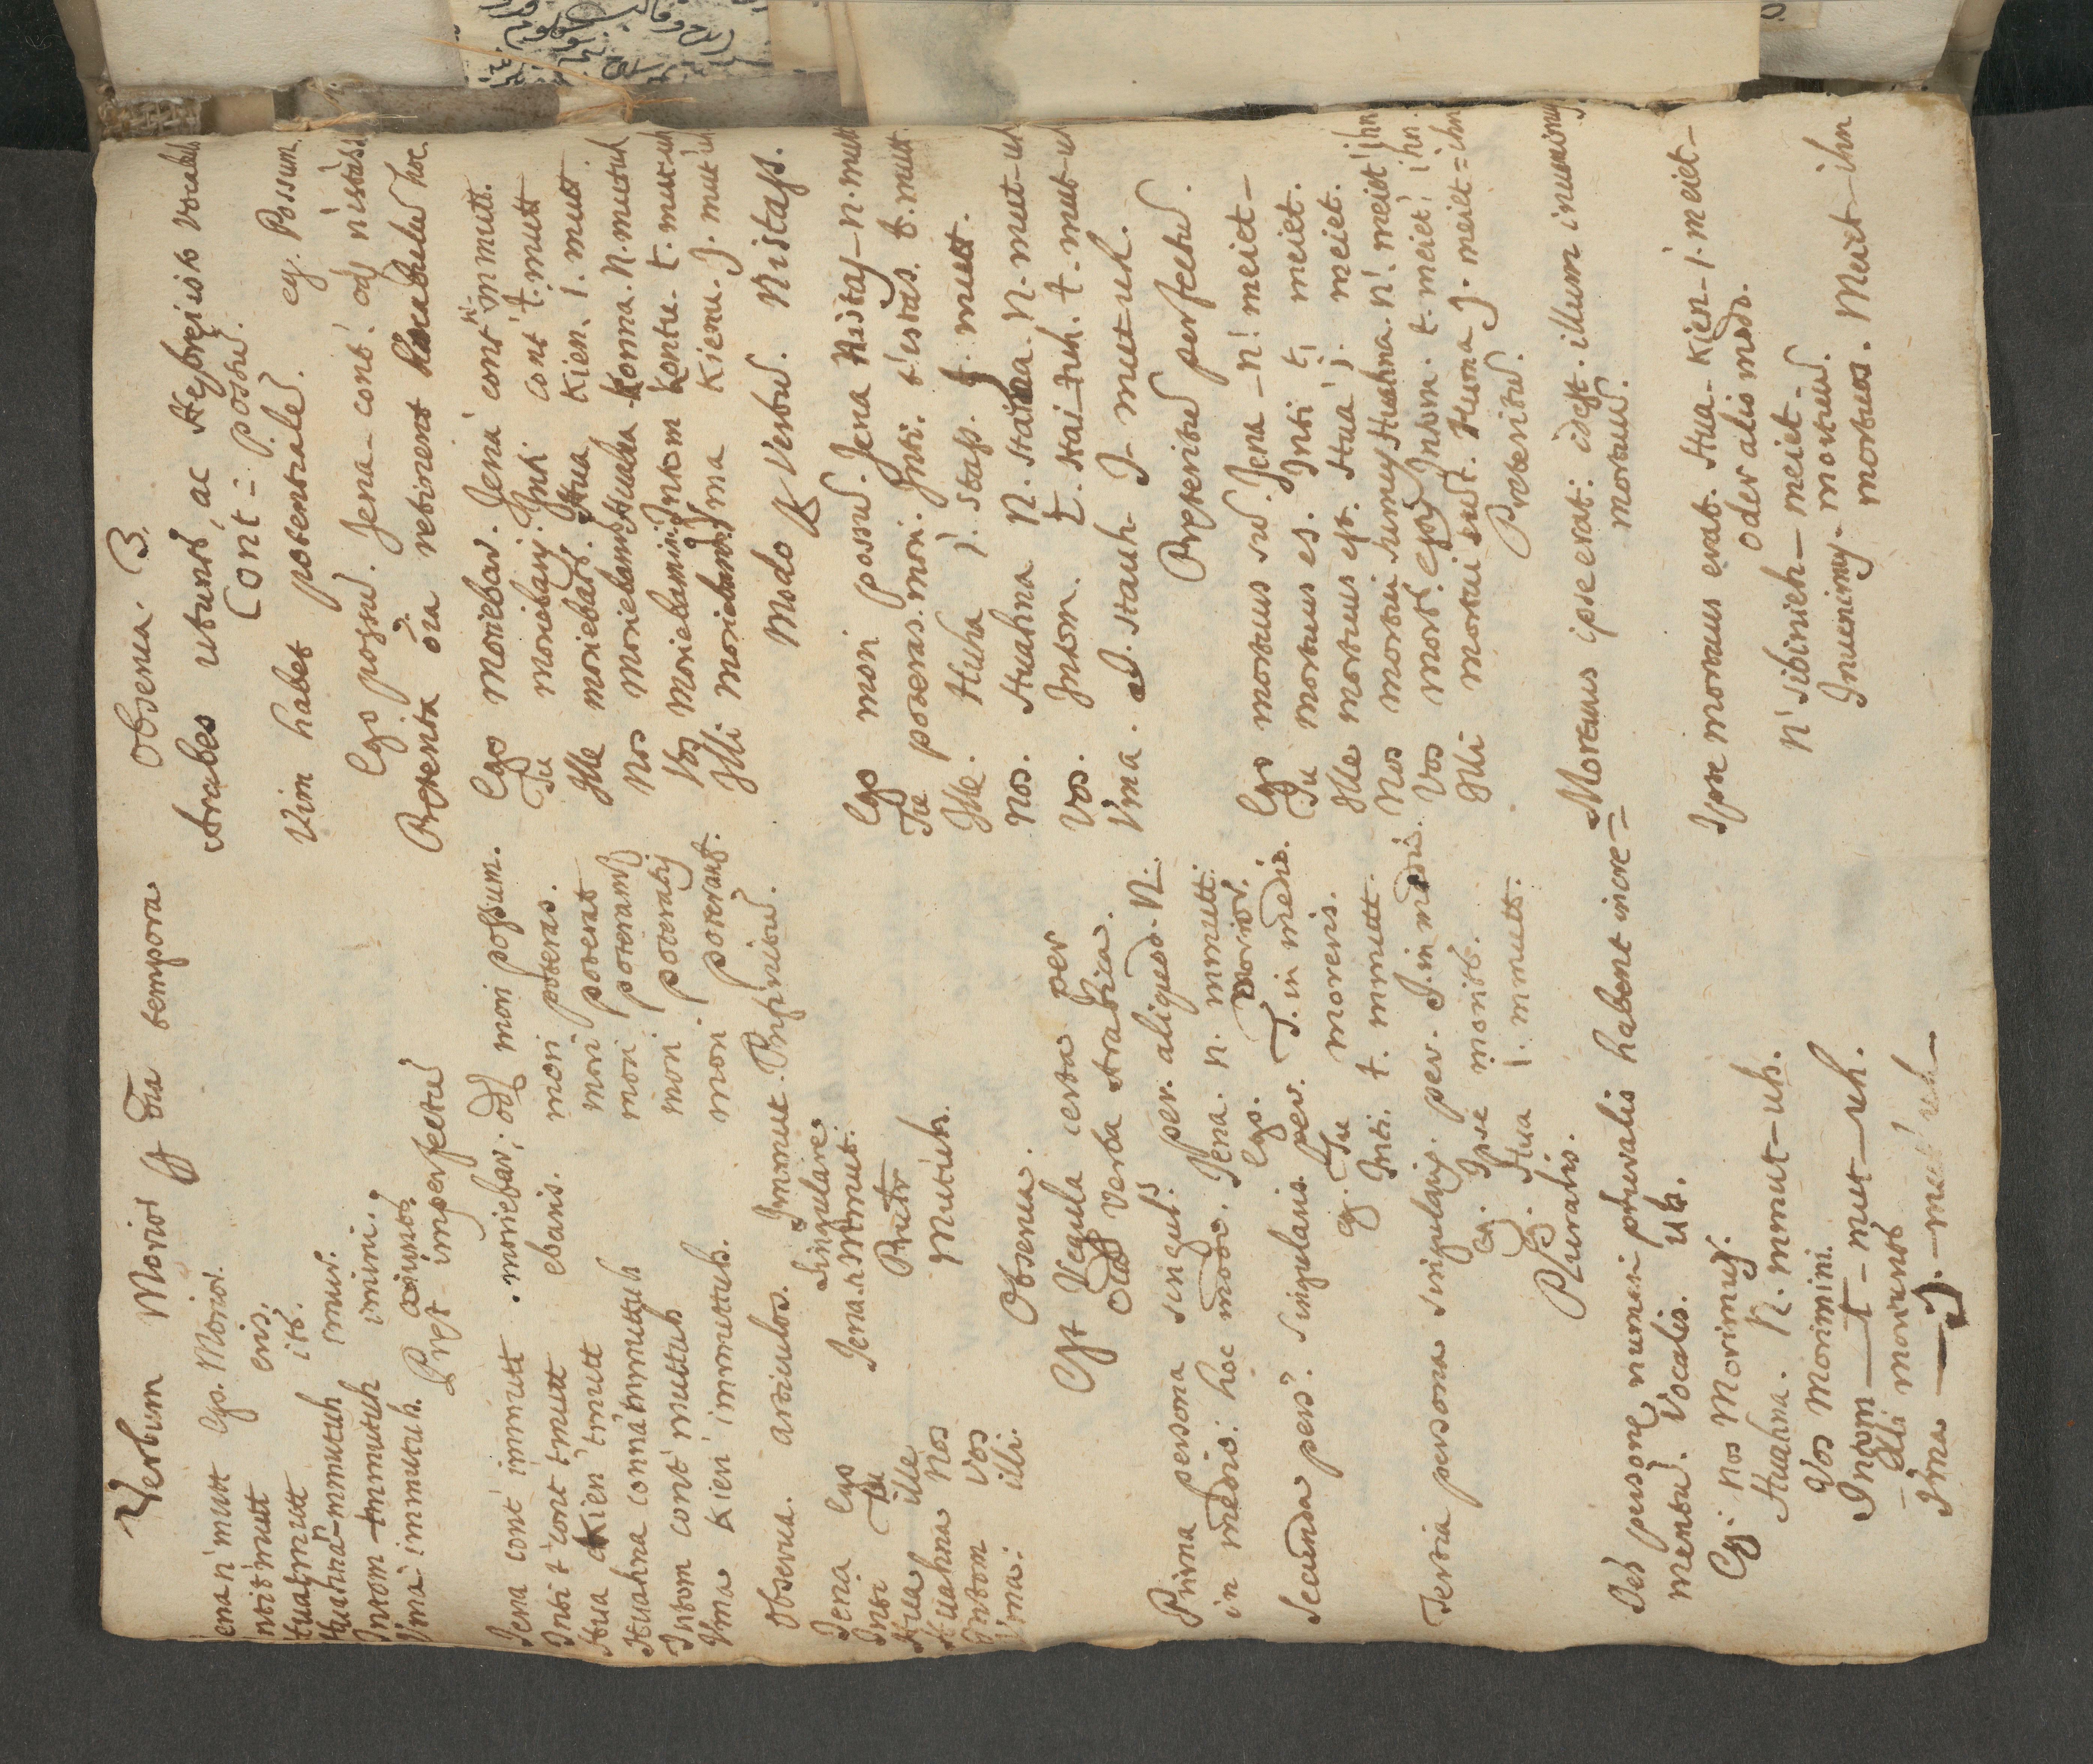 Verbum Morior p̄ oīa tempora
Jena n'mutt Ego. Morior.
ntit'mutt eris.
Hua imutt itr.
Huahna-nmutuh imur.
Intom tmmutuh imini.
Vma immutuh. riuntr.
Pręt imperfectū
Jena cont' inmutt . moriebar; od mori possum.
Inti t'cont tmutt ebaris. mori poteras.
Hua Kien' tmutt mori poterat
Huahna conna'nmuttuh mori poteramꝰ
Intom cont' muttuh mori. poteratis
Vma Kien immuttuh. mori poterant.
Observa. articulos. Immut. Infinitiū.
Singulare
Jena Ego Jena. n Mmut.
Inti tu
Hua ille
Huahna Nos Mutuh.
Intom Vos
Vma: illi.
Observa.
Est Regula certa per
Oīa Verba Arabica.
Prima persona singul: per. aliquod. N.
in medio: hoc modo. Jena. n. mmutt.
Ego. Morior.
Secunda pers: singularis per. T. in medio.
eg. Tu moreris.
Inti. t. mmutt.
Tertia persona singularis. per. I. in medio.
eg. Ipse moritr.
eg. Hua i. mmutt.
Pluralis.
personę numeri pluralis habent incre=
mentū. Vocalis. uh.
Eg: nos Morimur.
Huahna. N. mmut-uh.
Vos Morimini.
Intom — t - mut — uh.
- Illi moriuntr
Vma — J. - mut' uh -
Observa. B.
Arabes utunt, ac Hebreis Vocabulis
Cont = possū.
Vim habet potentiale. eg. Possum.
Ego possū. Jena - cont. od nistass
Pręterita oīa retinent Vocabulū hoc.
Ego Moriebar. Jena' cont' nmutt.
Tu moriebaris. Inti cont' t. mutt
Ille moriebatr. Hua Kien. i. mutt
Nos Moriebamr Huahna Konna. N. mutuh
Vos Moriebamini. Intom Kontu. t. mut-uh
Illi Moriebantr. Vma Kienu. J. mut'uh
Modo p Verbū. Nistass.
Ego mori possū. Jena Nistas - n. mutt
Tu poteras. mori. Inti. t'istas. t. mutt.
Ille. Huha i. stass. J. mutt.
Nos. Huahna N. staina. N. mut-uh
Vos. Intom. t. stai-tuh. t. mut-uh
Vma. J. stauh - J - mutuh.
Pręteritū perfectū.
Ego mortuus sū. Jena - n! meiet -
Tu mortuus es. Inti t; meiet.
Ille mortuus est. Hua' j. meiet.
Nos mortui sumus Huahna. n'. meiet' ihn
Vos mort: estis Intom. t. meiet' ihn.
Illi mortui sūt. Huma J. meiet = ihn
Pręteritū.
Mortuus ipse erat: id est. illum inuenimus
mortuū.
Ipse mortuus erat. Hua - Kien - i. meiet -
oder alis modo.
n' sibinieh - meiet -
Inuenimus - mortuū.
mortuos. Meiet - ihn